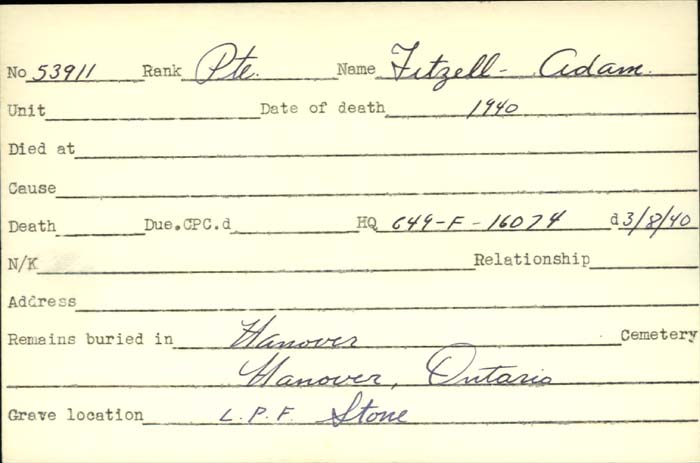 No 53911 Rank Pte. Name Fitzell - Adam.
Unit Date of death 1940
Died at
Cause
Death Due.CPC.d HQ 649-F-16074 d 3/8/40
N/K Relationship
Address
Remains buried in Hanover Cemetery
Hanover, Ontario
Grave location L.P.F. Stone